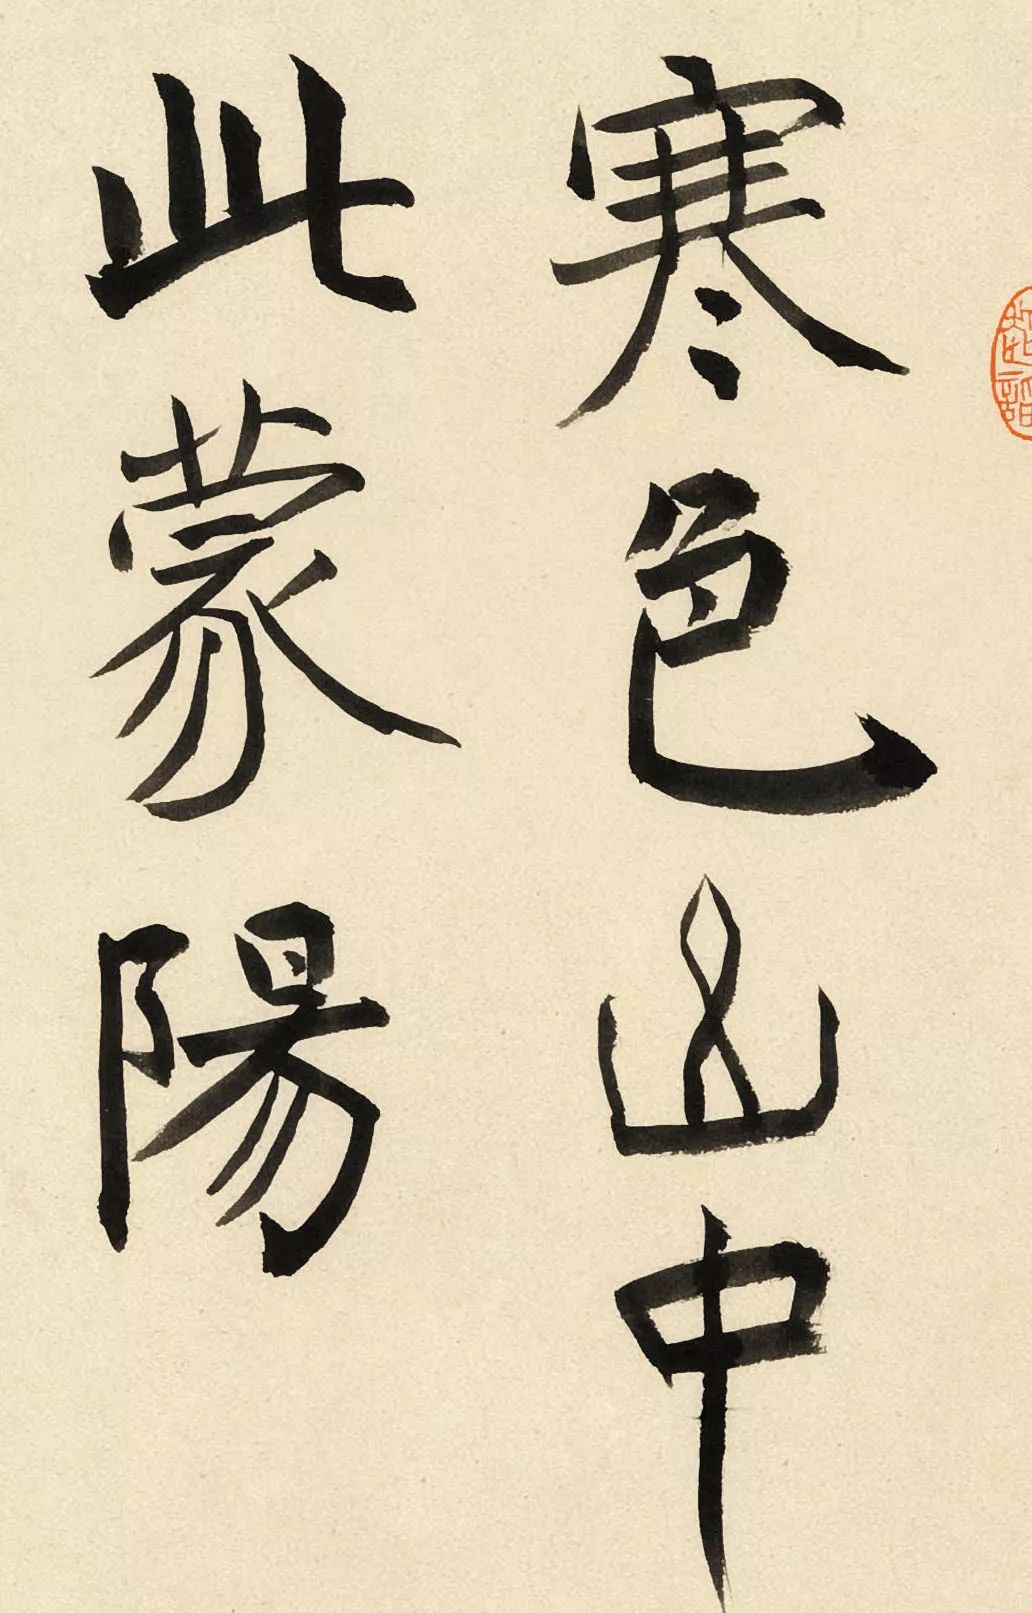 寒色山中
此蒙陽